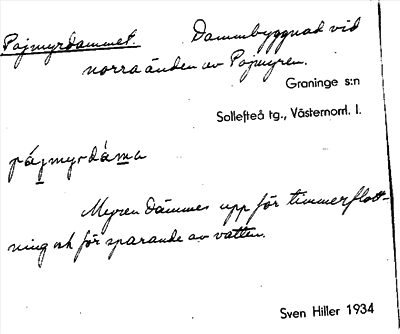 Pajmyrdammet. Dammbyggnad vid
norra änden av Pajmyren.
Graninge s:n
Sollefteå tg., Västernorrl. l.
pájmyrdáma
Myren dämmes upp för timmerflott-
ning och för sparande av vatten.
Sven Hiller 1934